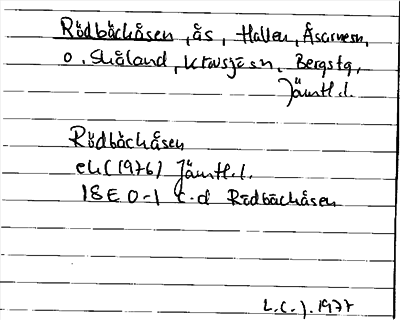 Rödbäckåsen, ås, Hallen, Åsarnesn,
o. Skåland, Klövsjösn, Bergstg,
Jämtl.l.
Rödbäckåsen
ek (1976) Jämtl.l.
18E 0-1 c-d Rödbäckåsen
L.C.J. 1977